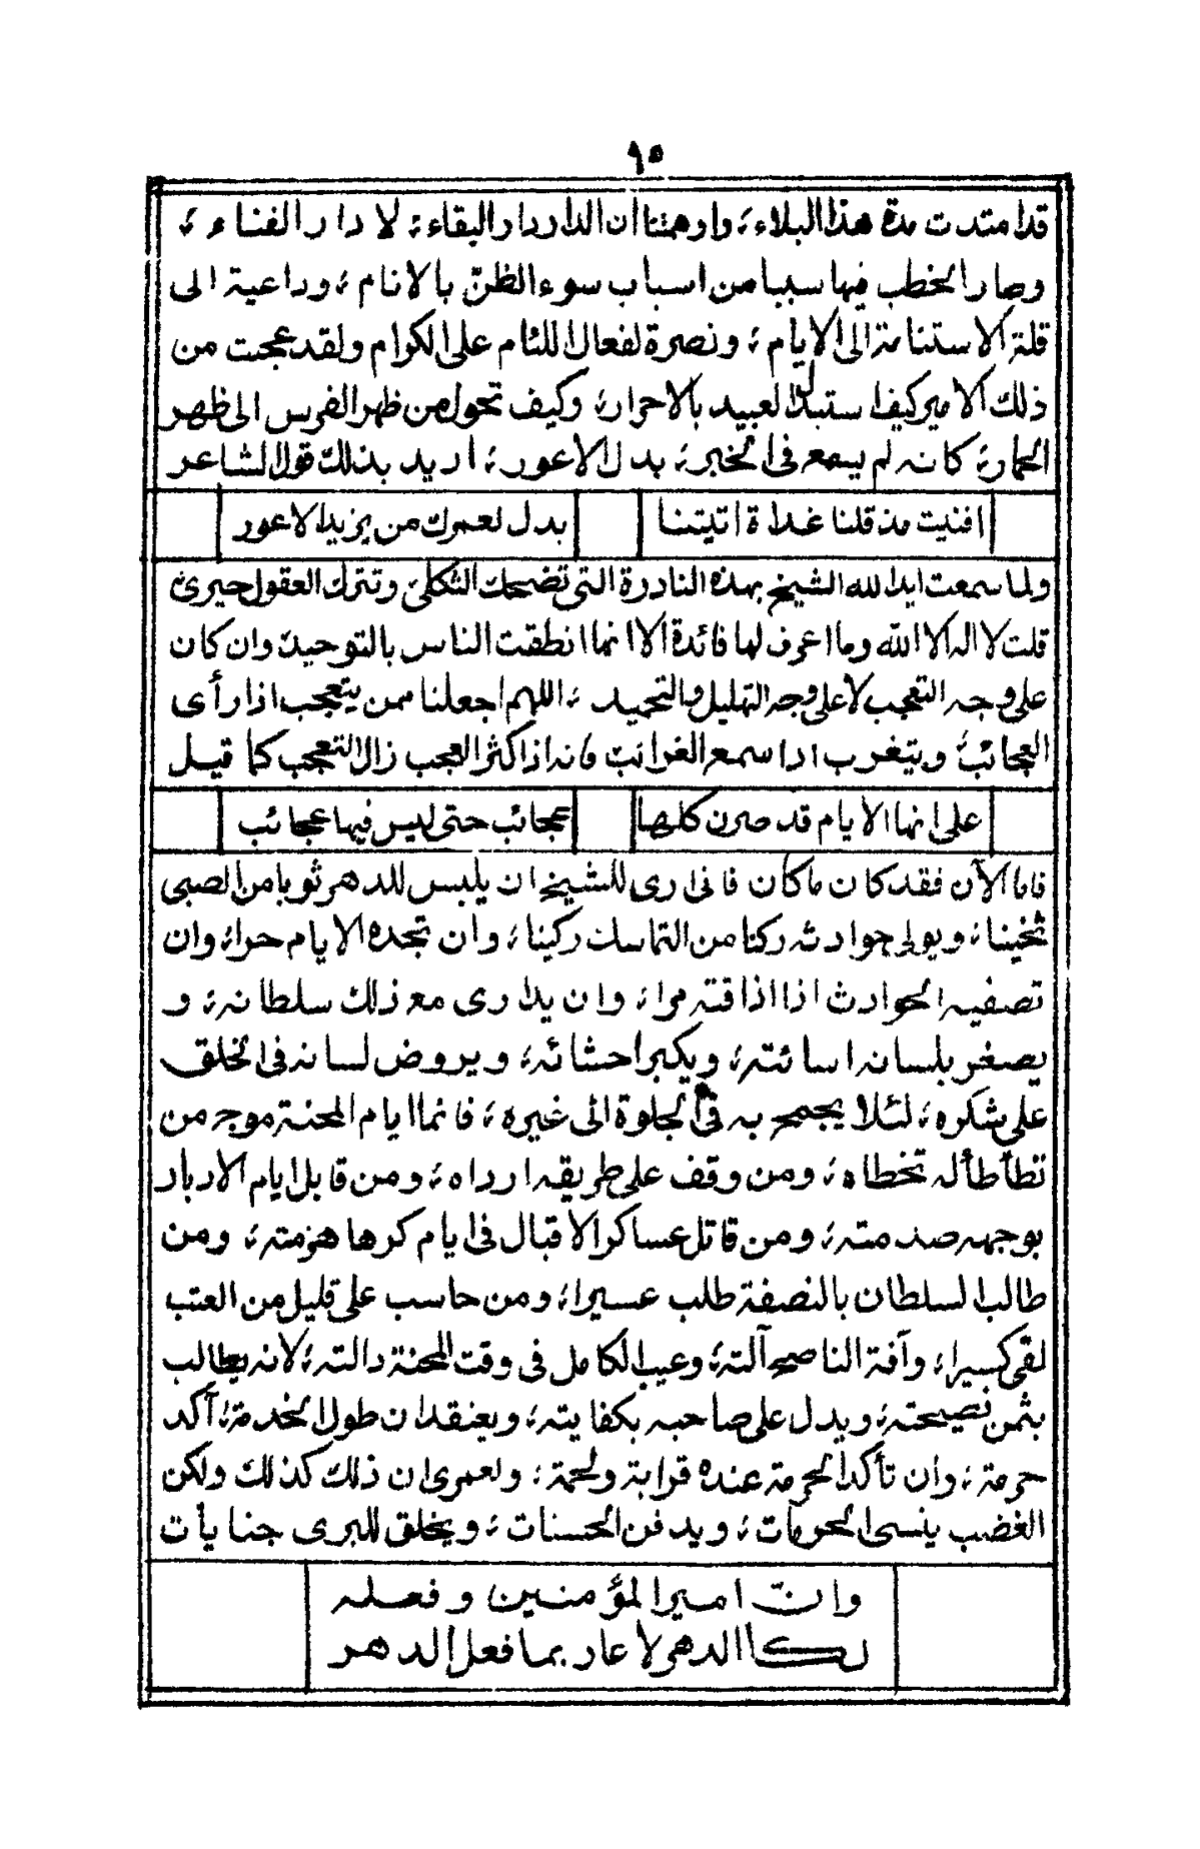 ٩٥
قد امتدت مدة هذا البلاء؛ واوهمتنا ان الدار دار البقاء؛ لا دار الفناء؛
وصار الخطب فيها سببا من اسباب سوء الظنّ بالانام؛ وداعية الى
قلة الاستنامة الى الايام؛ ونصرة لفعال اللئام على الكرام ولقد عجبت من
ذلك الامير كيف استبدل العبيد بالاحرار؛ وكيف تحول من ظهر الفرس الى ظهر
الحمار؛ كانه لم يسمع فى الخبر؛ بدل الاعور؛ اريد بذلك قول الشاعر
افنيت مذ قلنا غداة اتيتنا بدل لعمرك من يزيد الاعور
ولما سمعت ايد الله الشيخ بهذه النادرة التى تضحك الثكلى وتترك العقول حيرى
قلت لا اله الا الله وما اعرف لها فائدة الا انما انطقت الناس بالتوحيد وان كان
على وجه التعجب لا على وجه التهليل والتحميد؛ اللهم اجعلنا ممن يتعجب اذا رأى
العجائب؛ ويتغرب اذا سمع الغرائب فانه اذا كثر العجب زال التعجب كما قيل
على انها الايام قد صرن كلها عجائب حتى ليس فيها عجائب
فاما الآن فقد كان ما كان فانى ارى للشيخ ان يلبس للدهر ثوبا من الصبى
ثخينا؛ ويولى حوادثه ركنا من التماسك ركينا؛ وان تجده الايام حرا؛ وان
تصفيه الحوادث اذا اذاقته مرا؛ وان يدارى مع ذلك سلطانه؛ و
يصغر بلسانه اسائته؛ ويكبر احسانه؛ ويروض لسانه فى الخلق
على شكره؛ لئلا يجمح به فى الجلوة الى غيره؛ فانما ايام المحنة موجه من
تطأطأ له تخطاه؛ ومن وقف على طريقه ارداه؛ ومن قابل ايام الادبار
بوجهه صدمته؛ ومن قاتل عساكر الاقبال فى ايام كرها هزمته؛ ومن
طالب السلطان بالنصفة طلب عسيرا؛ ومن حاسب على قليل من العتب
لقى كسيرا؛ وآفة الناصح آلته؛ وعيب الكامل فى وقت المحنة دالته؛ لانه يطالب
بثمن نصيحته؛ ويدل على صاحبه بكفايته؛ ويعنقد ان طول الخدمة؛ آكد
حرمة؛ وان تأكد الحرمة عنده قرابة ولحمة؛ ولعمرى ان ذلك كذلك ولكن
الغضب ينسى الحرمات؛ ويدفن الحسنات؛ ويخلق للبرى جنايأت
وانّ امير المؤمنين وفعله
لكا الدهر لا عار بما فعل الدهر